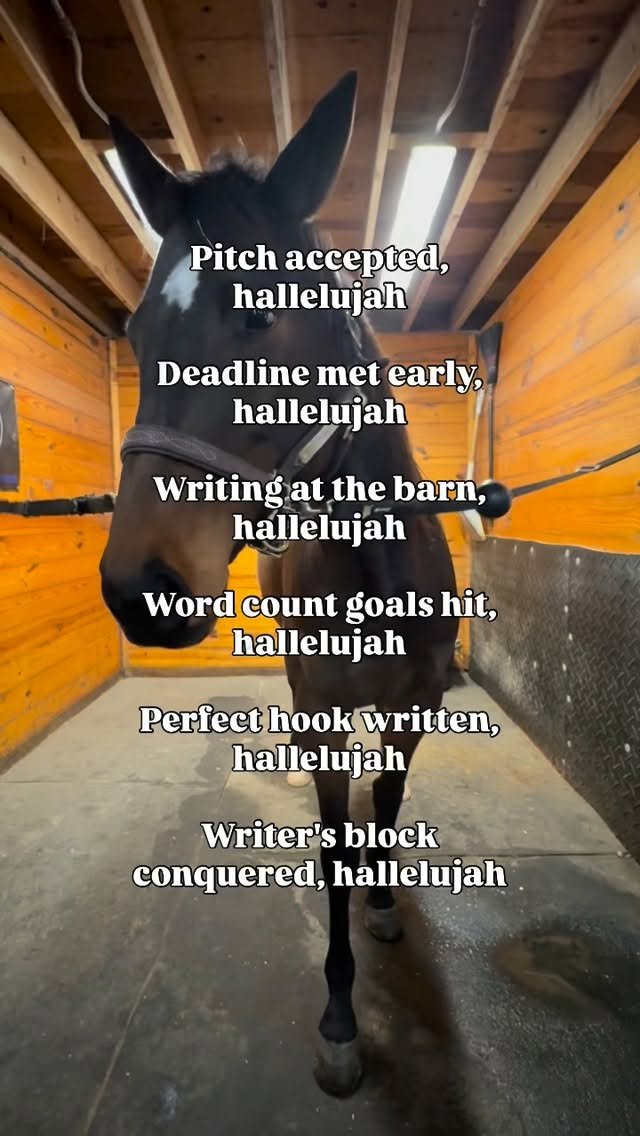 Pitch accepted,
hallelujah
Deadline met early,
hallelujah
Writing at the barn,
hallelujah
Word count goals hit,
hallelujah
Perfect hook written,
hallelujah
Writer's block
conquered, hallelujah